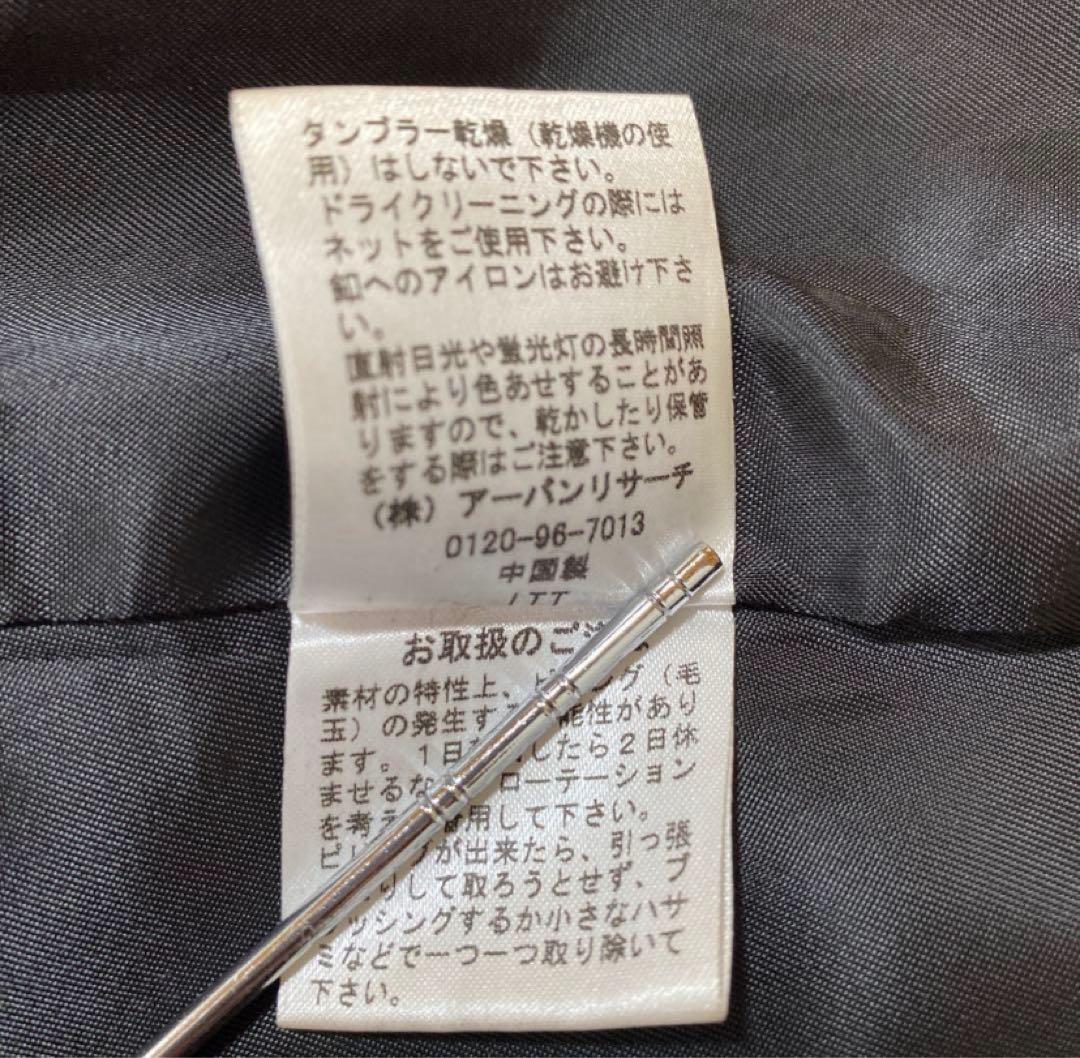 タンブラー乾燥（乾燥機の使
用）はしないで下さい。
ドライクリーニングの際には
ネットをご使用下さい。
釦へのアイロンはお避け下さ
い。
直射日光や蛍光灯の長時間照
射により色あせすることがあ
りますので、乾かしたり保管
をする際はご注意下さい。
（株）アーバンリサーチ
0120-96-7013
中国製
お取扱のご
素材の特性上、ピ ング（毛
玉）の発生す 能性があり
ます。１日 したら２日休
ませるな ローテーション
を考え 着用して下さい。
ピリ グが出来たら、引っ張
りして取ろうとせず、ブ
ッシングするか小さなハサ
ミなどで一つ一つ取り除いて
下さい。